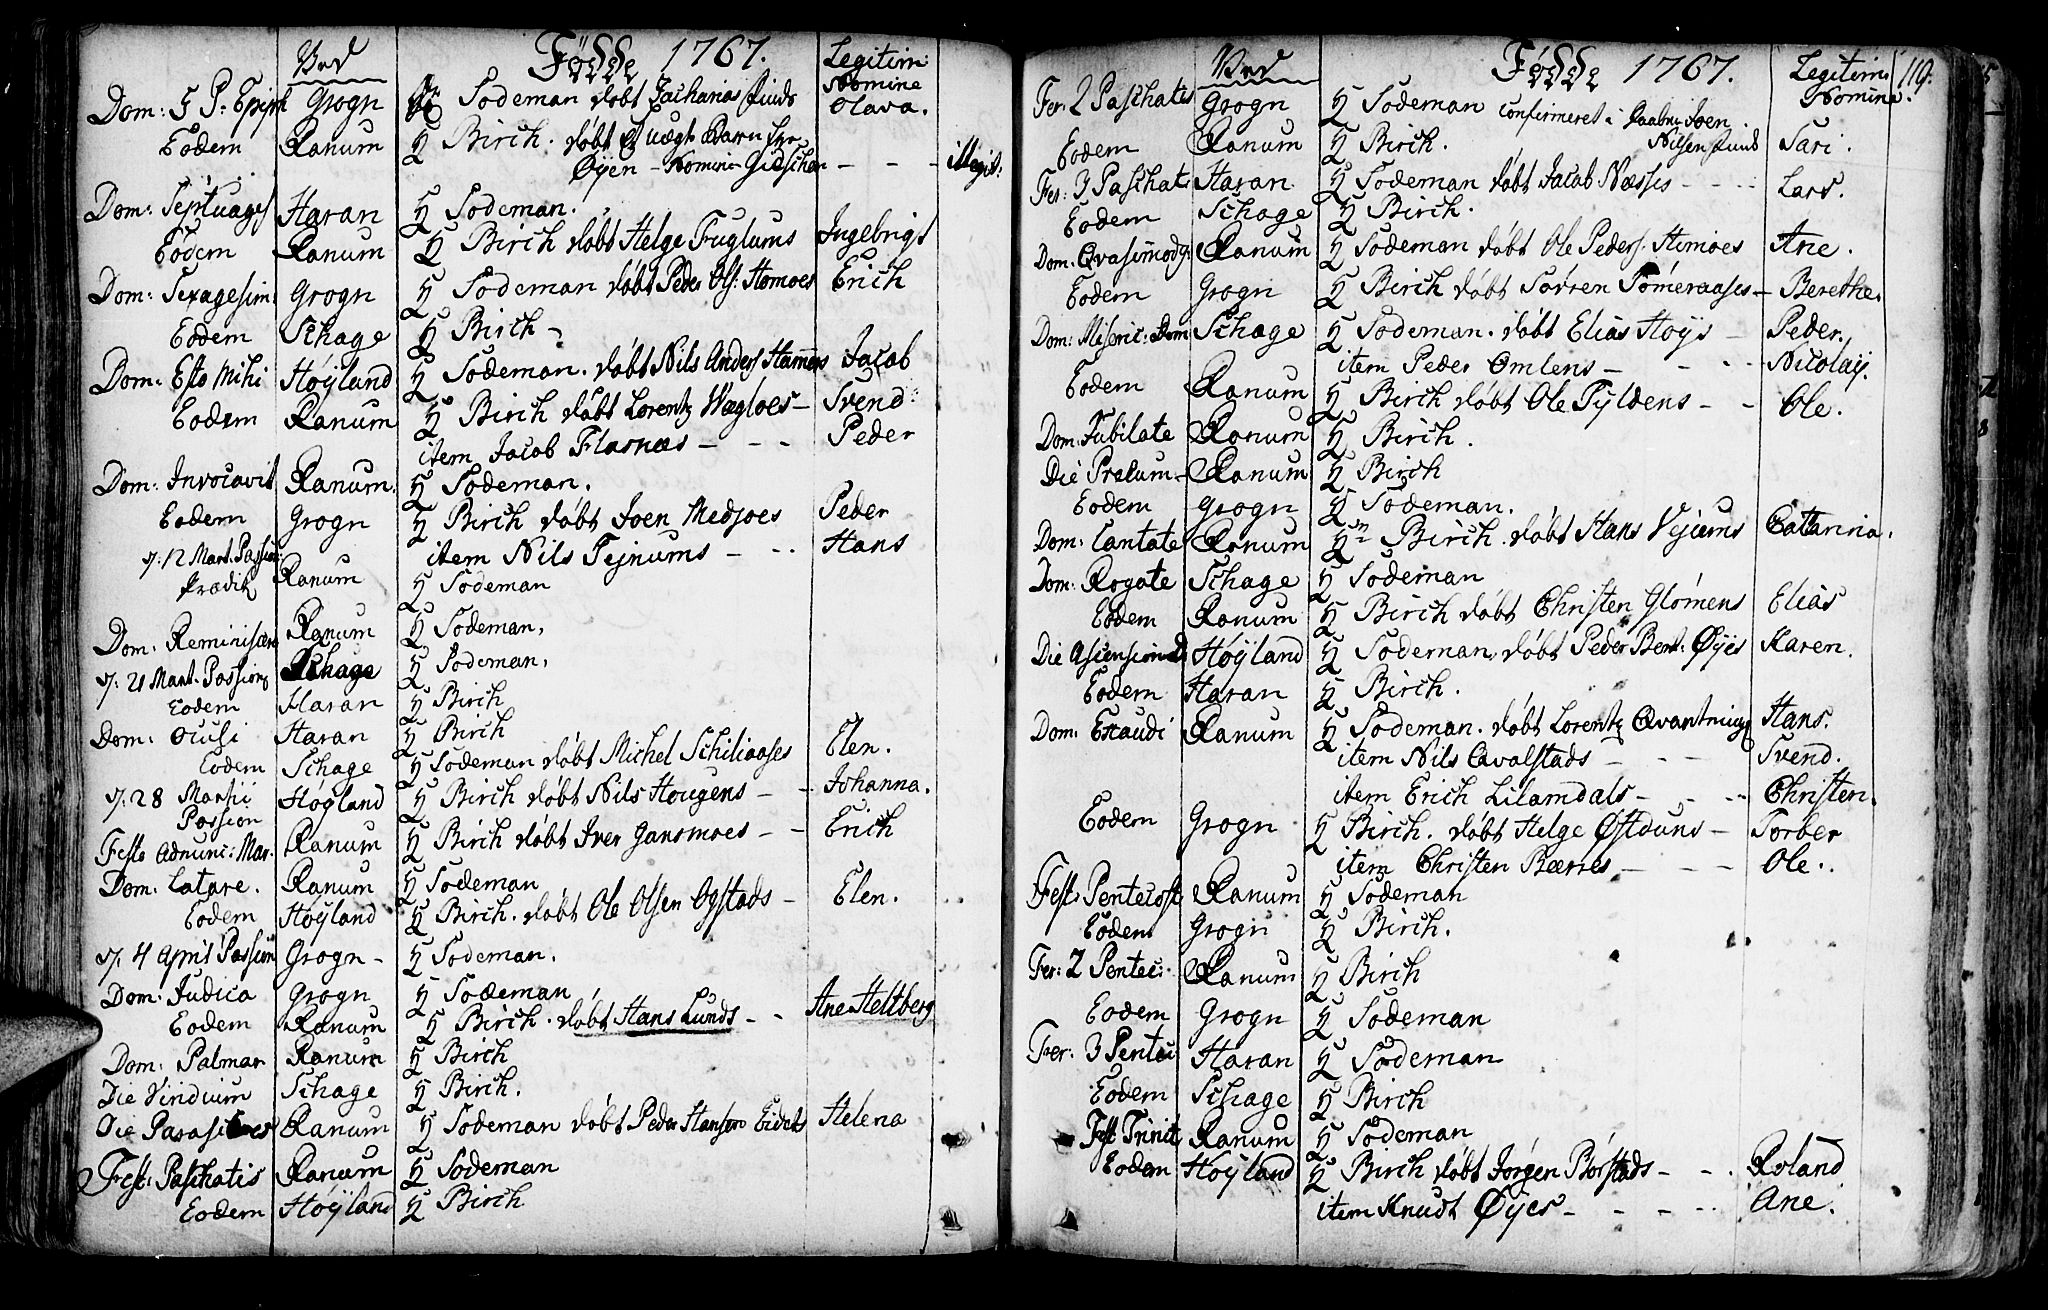 Ved Fødde 1767. Legitim: Nomine
Dom: 5 P: Epiph Grogn H Sodeman døbt Zacharias Lunds Olava.
Eodem Ranum H Birch. døbt et uægt Barn fra
Øyen - Nomine - - - illegit:
Dom: Septuages Haran H Sodeman.
Eodem Ranum H Birch døbt Helge Fuglums Ingebrigt
Dom: Sexagesim: Grogn H Sodeman døbt Peder Ols: Homoes Erich
Eodem Schage H Birch -
Dom: Esto Mihi Høyland H Sodeman. døbt Nils Anders Hammers Jacob
Eodem Ranum H Birch døbt Lorentz Wægloes - Svend
item Jacob Flasnæs - - - Peder
Dom: Invocavit Ranum. H Sodeman.
Eodem Grogn H Birch døbt Joen Medjoes Peder
item Nils Tejnums - - Hans
7: 12 Mart. Passion
Prædik Ranum H Sodeman
Dom: Reminiscere Ranum H Sodeman.
7: 21 Mart. Passion Schage H Sodeman.
Eodem Haran H Birch
Dom: Oculi Haran H Birch
Eodem Schage H Sodeman døbt Michel Schiliaases Elen.
7: 28 Martii Høyland H Birch døbt Nils Hougens - - Johanna.
Passion
Festo Adnunc: Mar. Ranum H Birch døbt Iver Gansmoes - - Erich
Dom: Lætare. Ranum H Sodeman
Eodem Høyland H Birch. døbt Ole Olsen Ogstads - Elen.
7: 4 April Passion Grogn - H Sodeman.
Dom: Judica Grogn H Sodeman,
Eodem Ranum H Birch. døbt Hans Lunds - - Ane Heltberg
Dom: Palmar Ranum H Birch
Die Viridium Schage H Birch.
Die Parasceves Ranum H Sodeman døbt Peder Hansen Eidets Helena
Fest: Paschatis Ranum H Sodeman
Eodem Høyland H Birch
Ved Fødde 1767. Legitim: Nomine. 119.
Fer: 2 Paschatis Grogn H Sodeman Confirmeret i Joen
Eodem Ranum H Birch. Nilsen Lund Sari.
Fer: 3 Paschat: Haran H Sodeman døbt Jacob Næsses - - - Lars.
Eodem Schage H Birch.
Dom: Qvasimodg: Ranum H Sodeman døbt Ole Peders: Homoes Ane.
Eodem Grogn H Birch døbt Sørren Sømeraases - Berethe.
Dom: Miseric: Dom Schage H Sodeman. døbt Elias Høys - Peder.
item Peder Omlens - - - - Nicolaij.
Eodem Ranum H Birch døbt Ole Tyldens - - Ole.
Dom: Jubilate Ranum H Birch.
Die Precum - Ranum H Birch
Eodem Grogn H Sodeman.
Dom: Cantate Ranum Hr Birch. døbt Hans Vejums Cattarina.
Dom: Rogate Schage H Sodeman
Eodem Ranum H Birch døbt Christen Glømens Elias
Die Ascensionis Høyland H Sodeman. døbt Peder Bent: Øyes Karen.
Eodem Haran H Birch.
Dom: Exaudi Ranum H Sodeman. døbt Lorentz Qvatnings Hans.
item Nils Qvalstads - - - Svend.
item Erich Lilamdals - - - Christen.
Eodem Grogn H Birch. døbt Helge Østduns - Torber
item Christen Bærres - - - Ole.
Fest: Pentecost Ranum H Sodeman
Eodem Grogn H Birch.
Fer: 2 Pentec: Ranum H Birch
Eodem Grogn H Sodeman
Fer: 3 Pentec Haran H Sodeman
Eodem Schage H Birch
Fest Trinit Ranum H Sodeman
Eodem Høyland H Birch døbt Jørgen Børstads - - . Roland
item Knudt Øyes - - - - Ane.